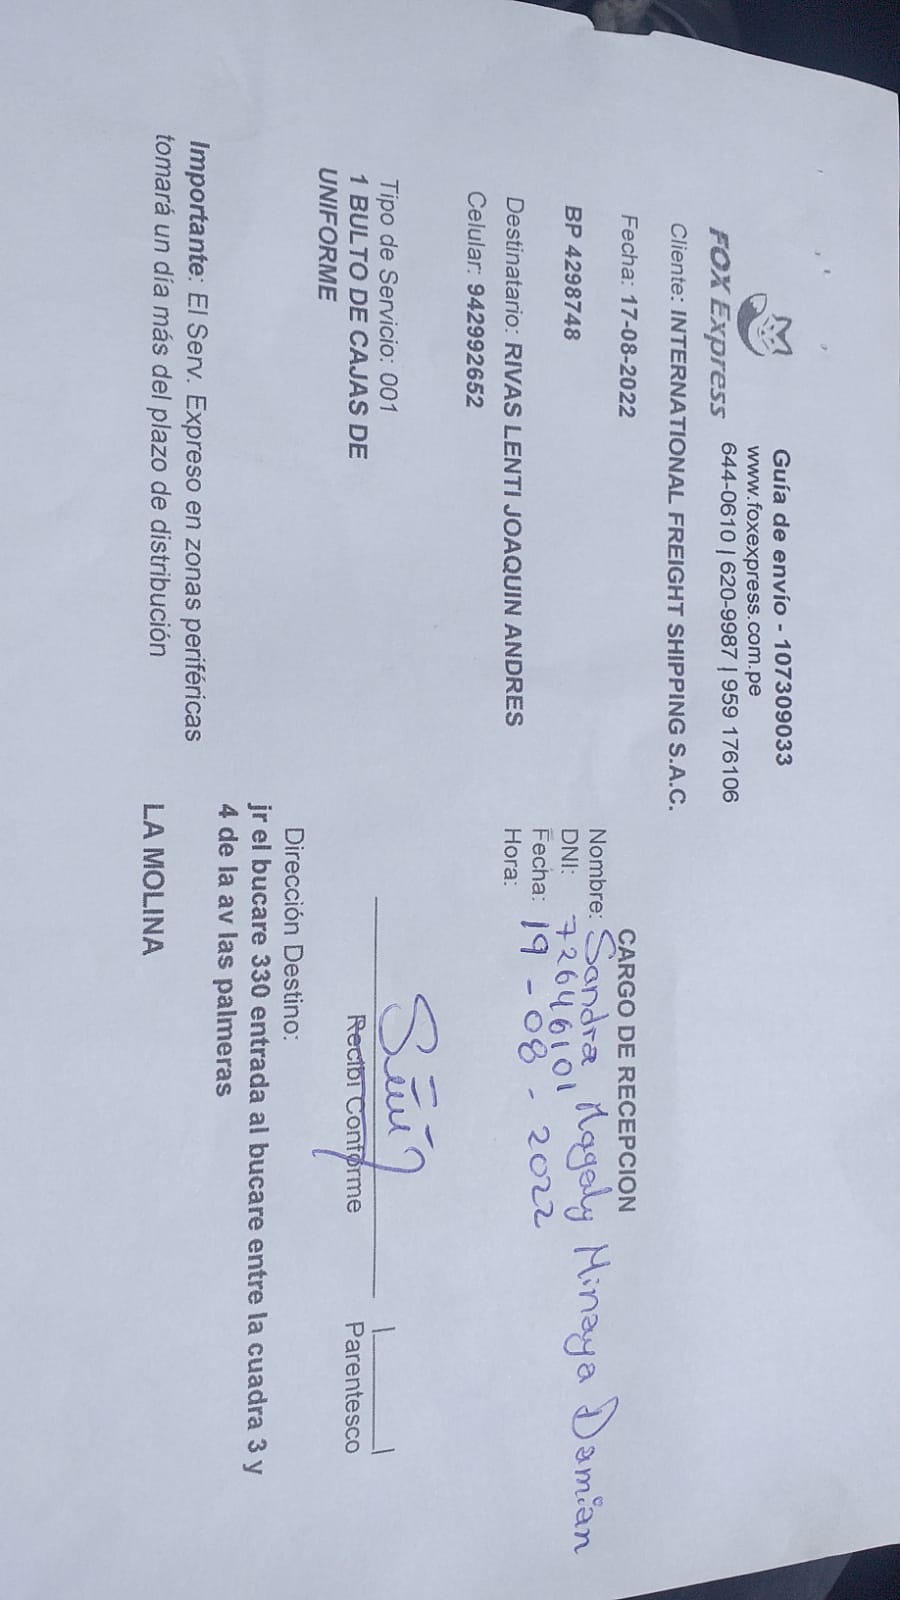 Guía de envío - 107309033
www.foxexpress.com.pe
FOX Express
644-0610 | 620-9987 | 959 176106
Cliente: INTERNATIONAL FREIGHT SHIPPING S.A.C.
Fecha: 17-08-2022
BP 4298748
Destinatario: RIVAS LENTI JOAQUIN ANDRES
Celular: 942992652
Tipo de Servicio: 001
1 BULTO DE CAJAS DE
UNIFORME
Importante: El Serv. Expreso en zonas periféricas
tomará un día más del plazo de distribución
CARGO DE RECEPCION
Nombre: Sandra Magaly Minaya Damian
DNI: 72646101
Fecha: 19-08-2022
Hora:
Recibi Conforme
Parentesco
Dirección Destino:
jr el bucare 330 entrada al bucare entre la cuadra 3 y
4 de la av las palmeras
LA MOLINA